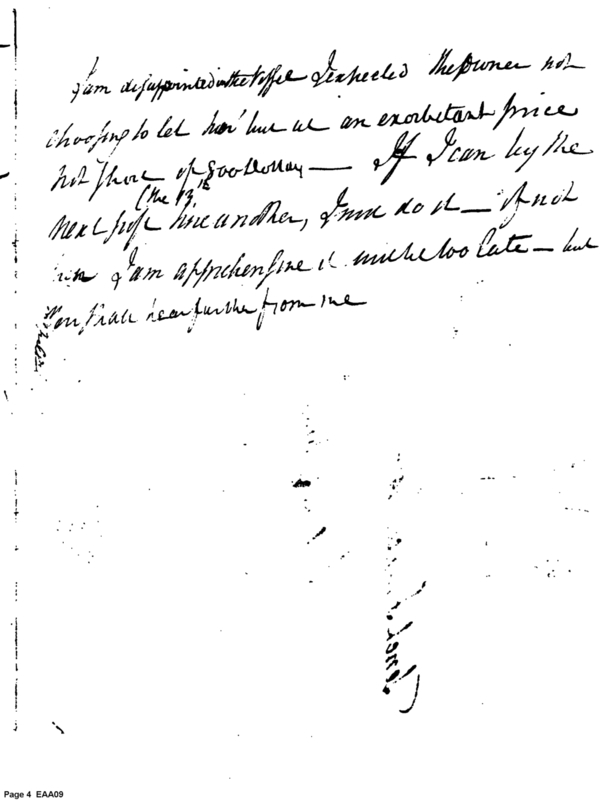 I am disappointed in the Vessel I expected the Owner not
choosing to let her but at an exorbitant price
not short of 800 Dollars — If I can by the
(the 13th
next post hire another, I will do it — if not
I am apprehensive it will be too late — but
You shall hear further from me
Page 4 EAA09